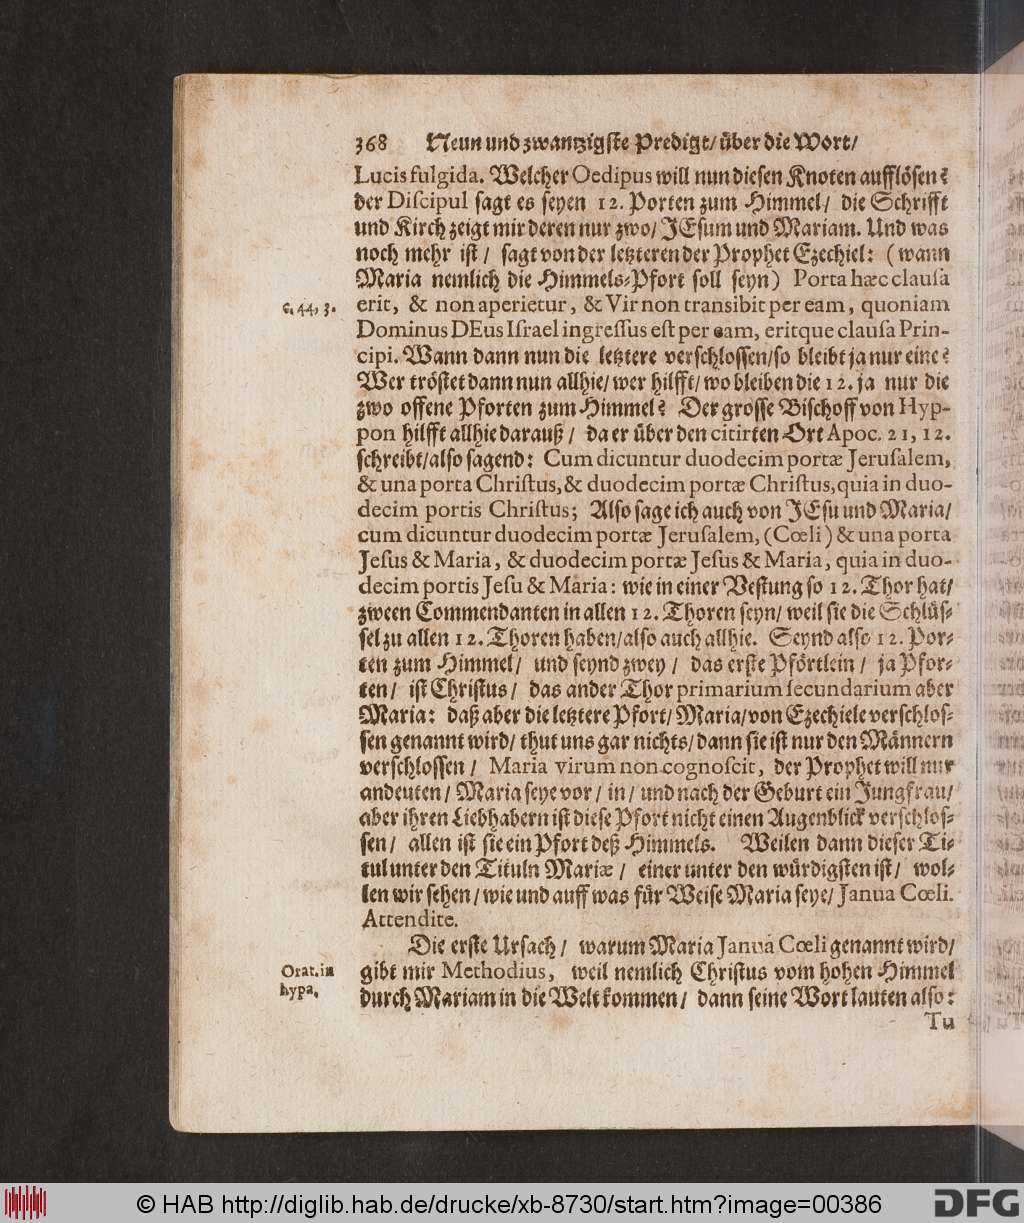 368 Neun und zwantzigſte Predigt/ über die Wort/
Lucis fulgida. Welcher Oedipus will nun dieſen Knoten aufflöſen?
der Diſcipul ſagt es ſeyen 12. Porten zum Himmel/ die Schrifft
und Kirch zeigt mir deren nur zwo/ JEſum und Mariam. Und was
noch mehr iſt/ ſagt von der letzteren der Prophet Ezechiel: (wann
Maria nemlich die Himmels-Pfort ſoll ſeyn) Porta hæc clauſa
c. 44, 3.
erit, & non aperietur, & Vir non transibit per eam, quoniam
Dominus DEus Iſrael ingreſſus eſt per eam, eritque clauſa Prin-
cipi. Wann dann nun die letztere verſchloſſen/ ſo bleibt ja nur eine?
Wer tröſtet dann nun allhie/ wer hilfft/ wo bleiben die 12. ja nur die
zwo offene Pforten zum Himmel? Der groſſe Biſchoff von Hyp-
pon hilfft allhie darauß/ da er über den citirten Ort Apoc. 21, 12.
ſchreibt/ alſo ſagend: Cum dicuntur duodecim portæ Jeruſalem,
& una porta Chriſtus, & duodecim portæ Chriſtus, quia in duo-
decim portis Chriſtus; Alſo ſage ich auch von JEſu und Maria/
cum dicuntur duodecim portæ Jeruſalem, (Cœli) & una porta
Jeſus & Maria, & duodecim portæ Jeſus & Maria, quia in duo-
decim portis Jeſu & Maria: wie in einer Veſtung ſo 12. Thor hat/
zween Commendanten in allen 12. Thoren ſeyn/ weil ſie die Schlüſ-
ſel zu allen 12. Thoren haben/ alſo auch allhie. Seynd alſo 12. Por-
ten zum Himmel/ und ſeynd zwey/ das erſte Pförtlein/ ja Pfor-
ten/ iſt Chriſtus/ das ander Thor primarium ſecundarium aber
Maria: daß aber die letztere Pfort/ Maria/ von Ezechiele verſchloſ-
ſen genannt wird/ thut uns gar nichts/ dann ſie iſt nur den Männern
verſchloſſen/ Maria virum non cognoſcit, der Prophet will nur
andeuten/ Maria ſeye vor/ in/ und nach der Geburt ein Jungfrau/
aber ihren Liebhabern iſt dieſe Pfort nicht einen Augenblick verſchloſ-
ſen/ allen iſt ſie ein Pfort deß Himmels. Weilen dann dieſer Ti-
tul unter den Tituln Mariæ/ einer unter den würdigſten iſt/ wol-
len wir ſehen/ wie und auff was für Weiſe Maria ſeye/ Janua Cœli.
Attendite.
Die erſte Urſach/ warum Maria Janua Cœli genannt wird/
Orat. in
hypa.
gibt mir Methodius, weil nemlich Chriſtus vom hohen Himmel
durch Mariam in die Welt kommen/ dann ſeine Wort lauten alſo:
Tu
© HAB http://diglib.hab.de/drucke/xb-8730/start.htm?image=00386
DFG